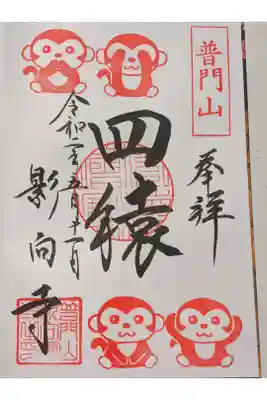 普門山
奉拝
四猿
令和 五月十一日
影向寺